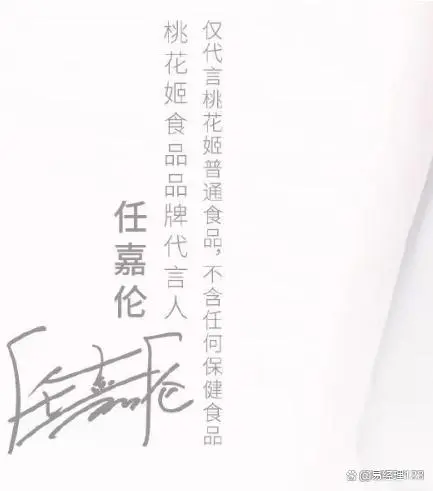 仅代言桃花姬普通食品，不含任何保健食品
桃花姬食品品牌代言人
任嘉伦
任嘉伦
@易经理123